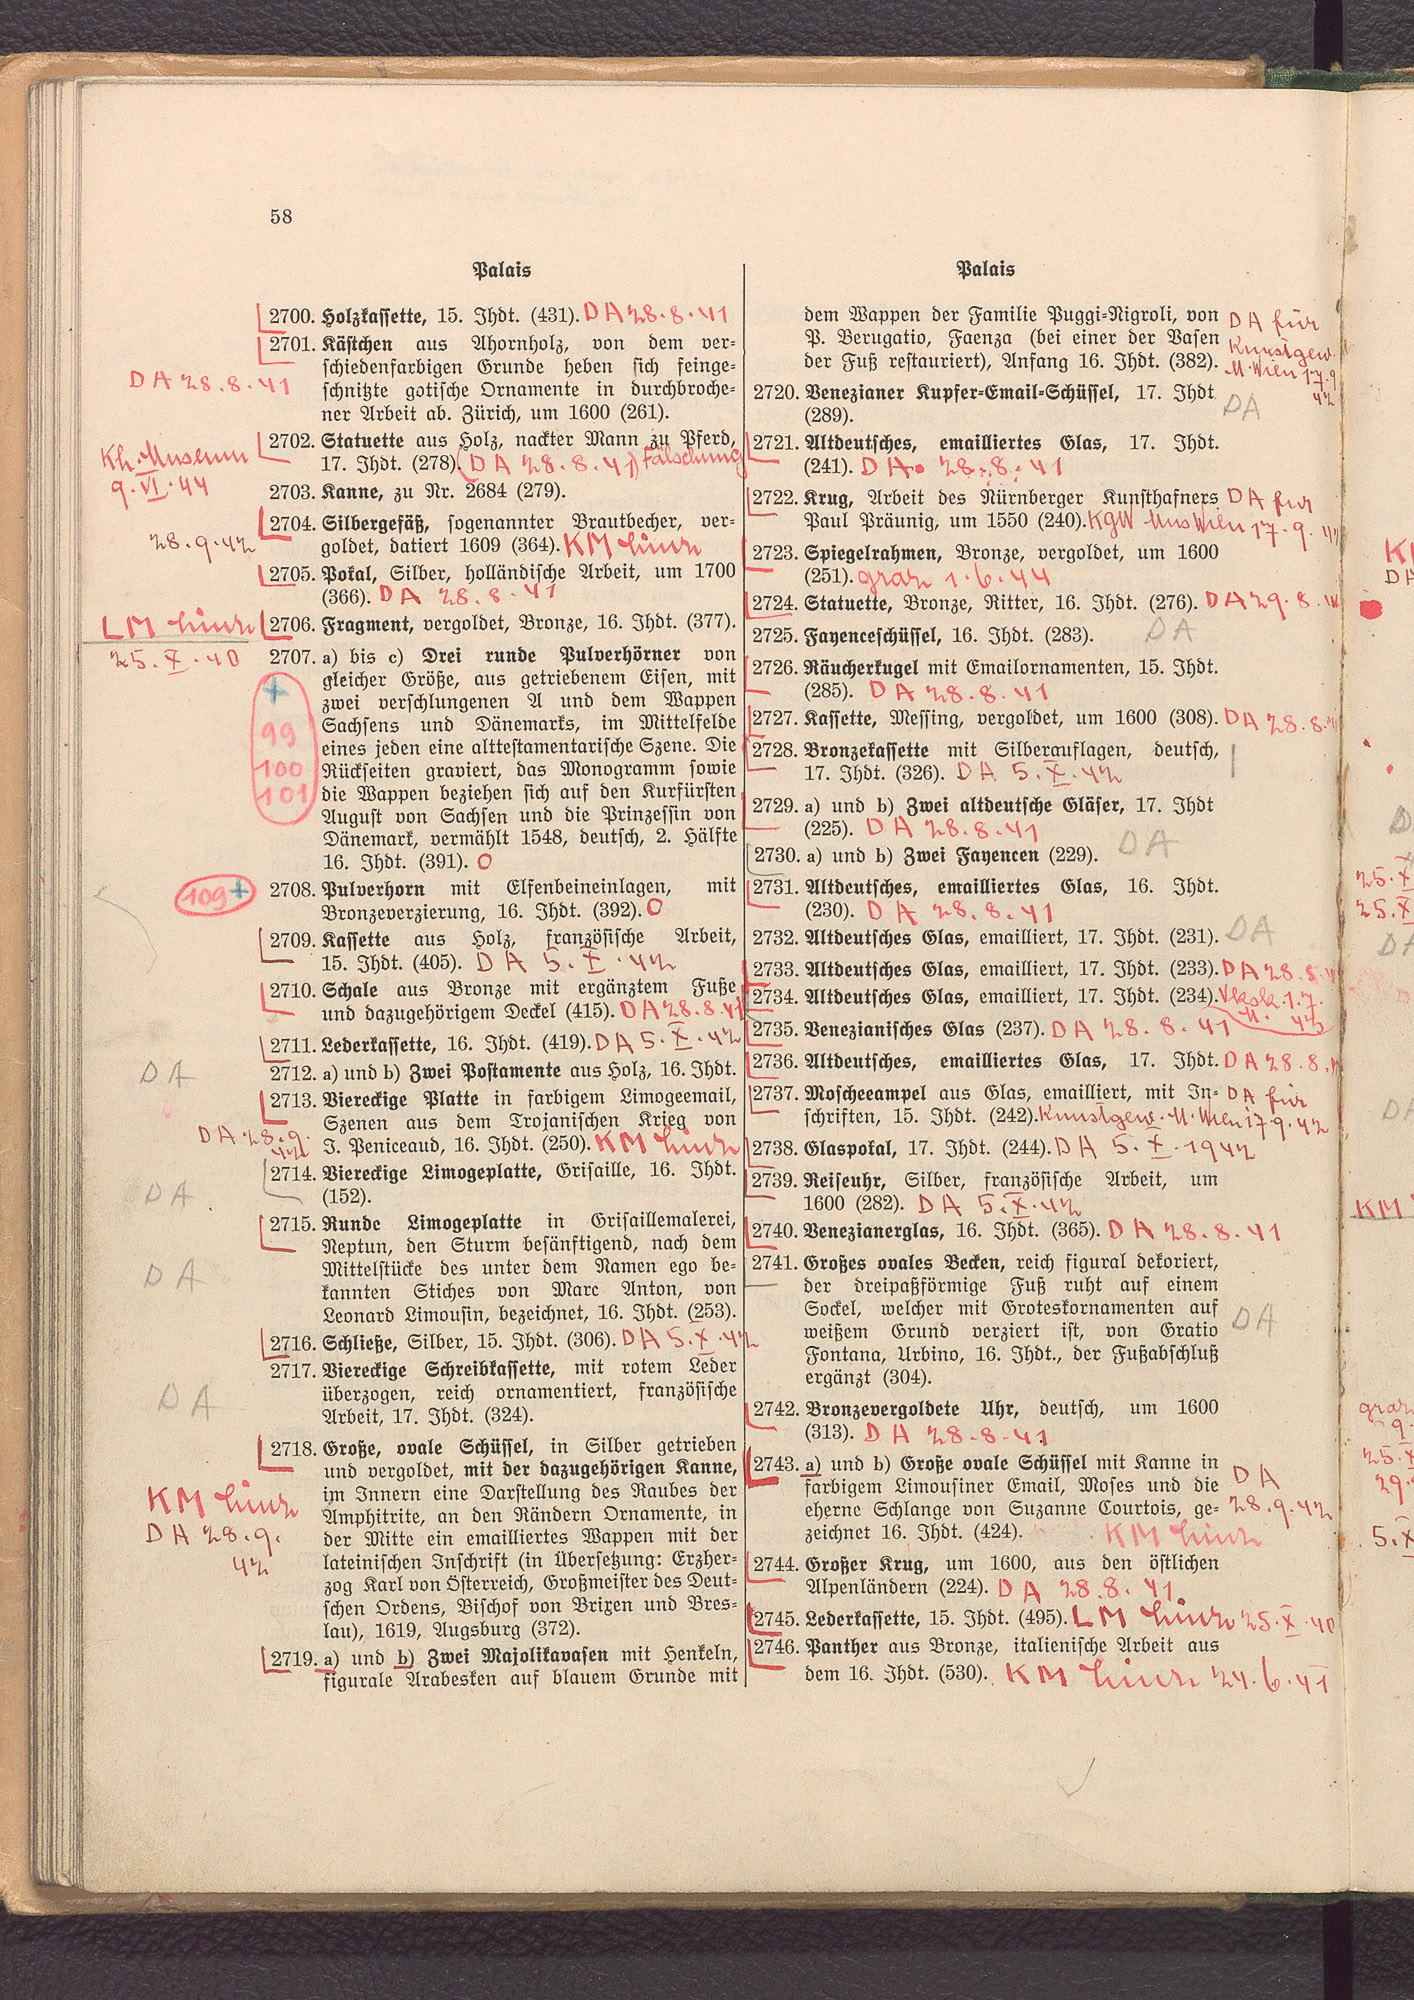 58
Palais
2700. Holzkassette, 15. Jhdt. (431). DA 28.8.41
2701. Kästchen aus Ahornholz, von dem ver-
schiedenfarbigen Grunde heben sich feinge-
DA 28.8.41
schnitzte gotische Ornamente in durchbroche-
ner Arbeit ab. Zürich, um 1600 (261).
2702. Statuette aus Holz, nackter Mann zu Pferd,
Kh. Museum
17. Jhdt. (278). (DA 28.8.41) Fälschung
9.VI.44
2703. Kanne, zu Nr. 2684 (279).
2704. Silbergefäß, sogenannter Brautbecher, ver-
28.9.42
goldet, datiert 1609 (364). KM Linz
2705. Pokal, Silber, holländische Arbeit, um 1700
(366). DA 28.8.41
LM Linz
2706. Fragment, vergoldet, Bronze, 16. Jhdt. (377).
25.X.40
2707. a) bis c) Drei runde Pulverhörner von
gleicher Größe, aus getriebenem Eisen, mit
+
zwei verschlungenen A und dem Wappen
Sachsens und Dänemarks, im Mittelfelde
99
eines jeden eine alttestamentarische Szene. Die
100
Rückseiten graviert, das Monogramm sowie
101
die Wappen beziehen sich auf den Kurfürsten
August von Sachsen und die Prinzessin von
Dänemark, vermählt 1548, deutsch, 2. Hälfte
16. Jhdt. (391). O
109+
2708. Pulverhorn mit Elfenbeineinlagen, mit
Bronzeverzierung, 16. Jhdt. (392). O
2709. Kassette aus Holz, französische Arbeit,
15. Jhdt. (405). DA 5.X.42
2710. Schale aus Bronze mit ergänztem Fuße
und dazugehörigem Deckel (415). DA 28.8.41
2711. Lederkassette, 16. Jhdt. (419). DA 5.X.42
DA
2712. a) und b) Zwei Postamente aus Holz, 16. Jhdt.
2713. Viereckige Platte in farbigem Limogeemail,
Szenen aus dem Trojanischen Krieg von
DA 28.9.
42
J. Peniceaud, 16. Jhdt. (250). KM Linz
2714. Viereckige Limogeplatte, Grisaille, 16. Jhdt.
DA
(152).
2715. Runde Limogeplatte in Grisaillemalerei,
Neptun, den Sturm besänftigend, nach dem
DA
Mittelstücke des unter dem Namen ego be-
kannten Stiches von Marc Anton, von
Leonard Limousin, bezeichnet, 16. Jhdt. (253).
2716. Schließe, Silber, 15. Jhdt. (306). DA 5.X.42
2717. Viereckige Schreibkassette, mit rotem Leder
DA
überzogen, reich ornamentiert, französische
Arbeit, 17. Jhdt. (324).
2718. Große, ovale Schüssel, in Silber getrieben
und vergoldet, mit der dazugehörigen Kanne,
KM Linz
im Innern eine Darstellung des Raubes der
DA 28.9.
Amphitrite, an den Rändern Ornamente, in
42
der Mitte ein emailliertes Wappen mit der
lateinischen Inschrift (in Übersetzung: Erzher-
zog Karl von Österreich, Großmeister des Deut-
schen Ordens, Bischof von Brixen und Bres-
lau), 1619, Augsburg (372).
2719. a) und b) Zwei Majolikavasen mit Henkeln,
figurale Arabesken auf blauem Grunde mit
Palais
dem Wappen der Familie Puggi-Nigroli, von
DA für
P. Berugatio, Faenza (bei einer der Vasen
Kunstgew.
der Fuß restauriert), Anfang 16. Jhdt. (382).
M. Wien 17.9
42
2720. Venezianer Kupfer-Email-Schüssel, 17. Jhdt
DA
(289).
2721. Altdeutsches, emailliertes Glas, 17. Jhdt.
(241). DA 28.8.41
2722. Krug, Arbeit des Nürnberger Kunsthafners DA für
Paul Präunig, um 1550 (240). KgW Mus Wien 17.9.42
2723. Spiegelrahmen, Bronze, vergoldet, um 1600
(251). Graz 1.6.44
2724. Statuette, Bronze, Ritter, 16. Jhdt. (276). DA 29.8.
2725. Fayenceschüssel, 16. Jhdt. (283). DA
2726. Räucherkugel mit Emailornamenten, 15. Jhdt.
(285). DA 28.8.41
2727. Kassette, Messing, vergoldet, um 1600 (308). DA 28.8.
2728. Bronzekassette mit Silberauflagen, deutsch,
17. Jhdt. (326). DA 5.X.42
2729. a) und b) Zwei altdeutsche Gläser, 17. Jhdt
(225). DA 28.8.41
2730. a) und b) Zwei Fayencen (229). DA
2731. Altdeutsches, emailliertes Glas, 16. Jhdt.
(230). DA 28.8.41
2732. Altdeutsches Glas, emailliert, 17. Jhdt. (231). DA
2733. Altdeutsches Glas, emailliert, 17. Jhdt. (233). DA 28.8.
2734. Altdeutsches Glas, emailliert, 17. Jhdt. (234). Vksk. 1.7.
M. 42
2735. Venezianisches Glas (237). DA 28.8.41
2736. Altdeutsches, emailliertes Glas, 17. Jhdt. DA 28.8.
2737. Moscheeampel aus Glas, emailliert, mit In- DA für
schriften, 15. Jhdt. (242). Kunstgew. M. Wien 17.9.42
2738. Glaspokal, 17. Jhdt. (244). DA 5.X.1942
2739. Reiseuhr, Silber, französische Arbeit, um
1600 (282). DA 5.X.42
2740. Venezianerglas, 16. Jhdt. (365). DA 28.8.41
2741. Großes ovales Becken, reich figural dekoriert,
der dreipaßförmige Fuß ruht auf einem
Sockel, welcher mit Groteskornamenten auf
DA
weißem Grund verziert ist, von Gratio
Fontana, Urbino, 16. Jhdt., der Fußabschluß
ergänzt (304).
2742. Bronzevergoldete Uhr, deutsch, um 1600
(313). DA 28.8.41
2743. a) und b) Große ovale Schüssel mit Kanne in
DA
farbigem Limousiner Email, Moses und die
28.9.42
eherne Schlange von Suzanne Courtois, ge-
zeichnet 16. Jhdt. (424). KM Linz
2744. Großer Krug, um 1600, aus den östlichen
Alpenländern (224). DA 28.8.41
2745. Lederkassette, 15. Jhdt. (495). LM Linz 25.X.40
2746. Panther aus Bronze, italienische Arbeit aus
dem 16. Jhdt. (530). KM Linz 24.6.41
DA
25.X
25.X
DA
DA
KM
25.X
29.
5.X